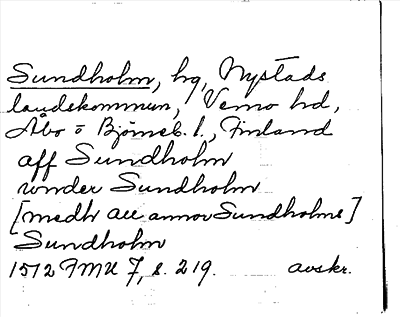 Sundholm, hg, Nystads
landskommun, Vemo hd,
Åbo o Björneb. l., Finland
aff Sundholm
vnder Sundholm
[medh all annor Sundholms]
Sundholm
1512 FMU 7, s. 219. avskr.